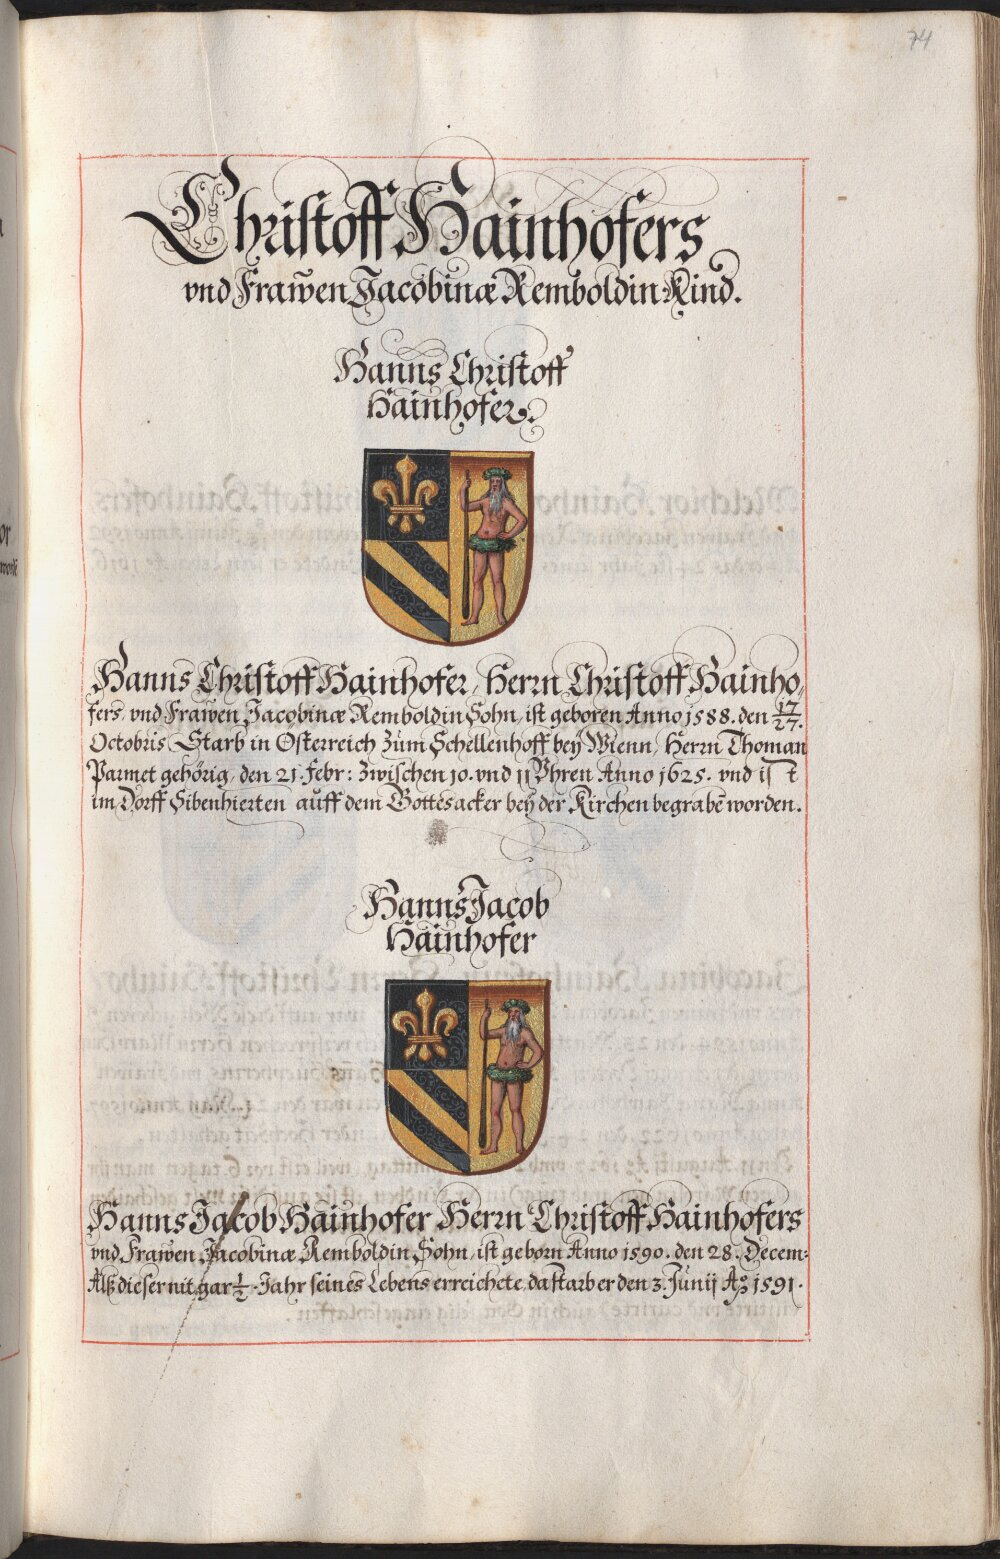 74
Christoff Hainhofers
vnd Frawen Jacobinæ Remboldin Kind.
Hanns Christoff
Hainhofer.
Hanns Christoff Hainhofer, Herrn Christoff Hainho,
fers, vnd Frawen Jacobinæ Remboldin Sohn, ist geboren Anno 1588. den 17/27.
Octobris, Starb in Osterreich zum Schellenhoff bey Wienn, Herrn Thoman
Parmet gehörig, den 21. Febr: zwischen 10. vnd 11 Vhren Anno 1625. vnd ist
im Dorff Sibenhierten auff dem Gottesacker bey der Kirchen begrabē worden.
Hanns Jacob
Hainhofer
Hanns Jacob Hainhofer Herrn Christoff Hainhofers
vnd Frawen Jacobinæ Remboldin Sohn, ist geborn Anno 1590. den 28. Decem:
Alß dieser nit gar 1/2. Jahr seines Lebens erreichete, da starb er den 3. Junij Aº 1591.